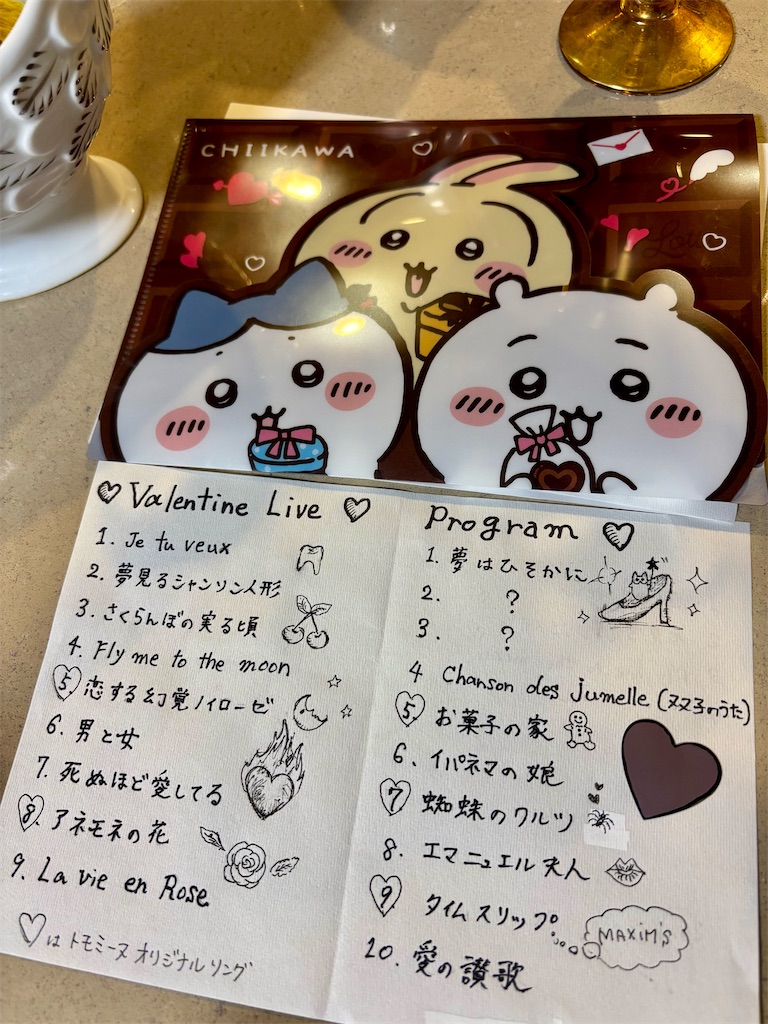 CHIIKAWA
Love
Valentine Live
1. Je tu veux
2. 夢見るシャンソン人形
3. さくらんぼの実る頃
4. Fly me to the moon
5 恋する幻覚ノイローゼ
6. 男と女
7. 死ぬほど愛してる
8. アネモネの花
9. La vie en Rose
♡は トモミーヌ オリジナルソング
Program
1. 夢はひそかに
2. ?
3. ?
4 Chanson des jumelle (双子のうた)
5. お菓子の家
6. イパネマの娘
7 蜘蛛のワルツ
8. エマニュエル夫人
9 タイムスリップ
MAXIM'S
10. 愛の讃歌